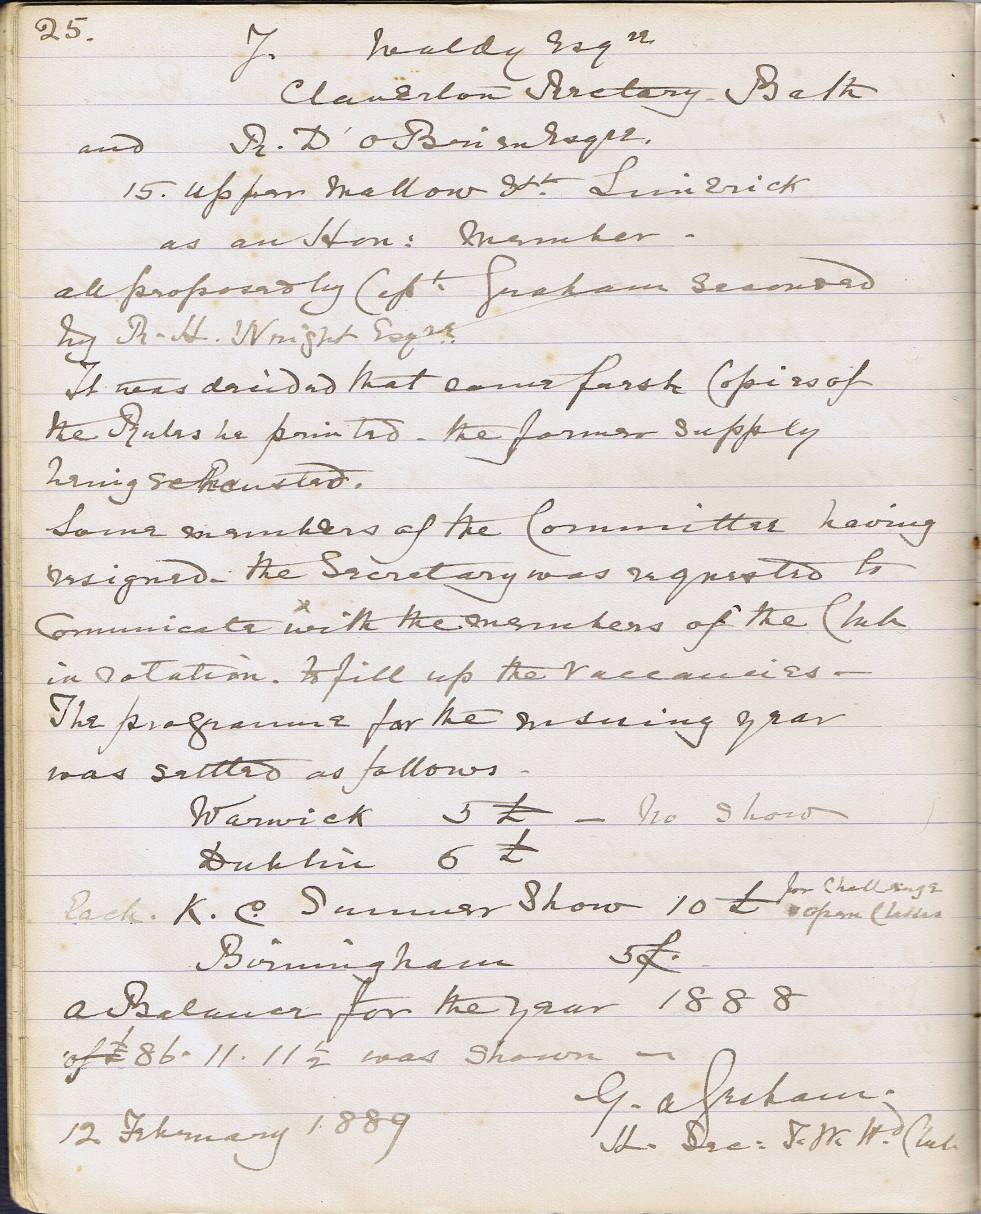 25.
T. Waldy Esqre
Claverton Rectory. Bath
and R. D' O'Brien Esqre.
15. Upper Mallow St. Limerick
as an Hon: Member -
all proposed by Capt. Graham seconded
by R. H. Wright Esqre.
It was decided that some fresh Copies of
the Rules be printed - the former supply
being exhausted.
Some members of the Committee having
resigned - the Secretary was requested to
Communicate x with the members of the Club
in rotation. to fill up the vaccancies -
The programme for the ensuing year
was settled as follows -
Warwick 5 £ - No Show
Dublin 6 £
Each. K. C. Summer Show 10 £ for Challenge
open Classes
Birmingham 5£.
a Balance for the year 1888
of £ 86. 11. 11½ was shown -
G. A Graham.
12 February 1889
H. Sec: I. W. Hd Club